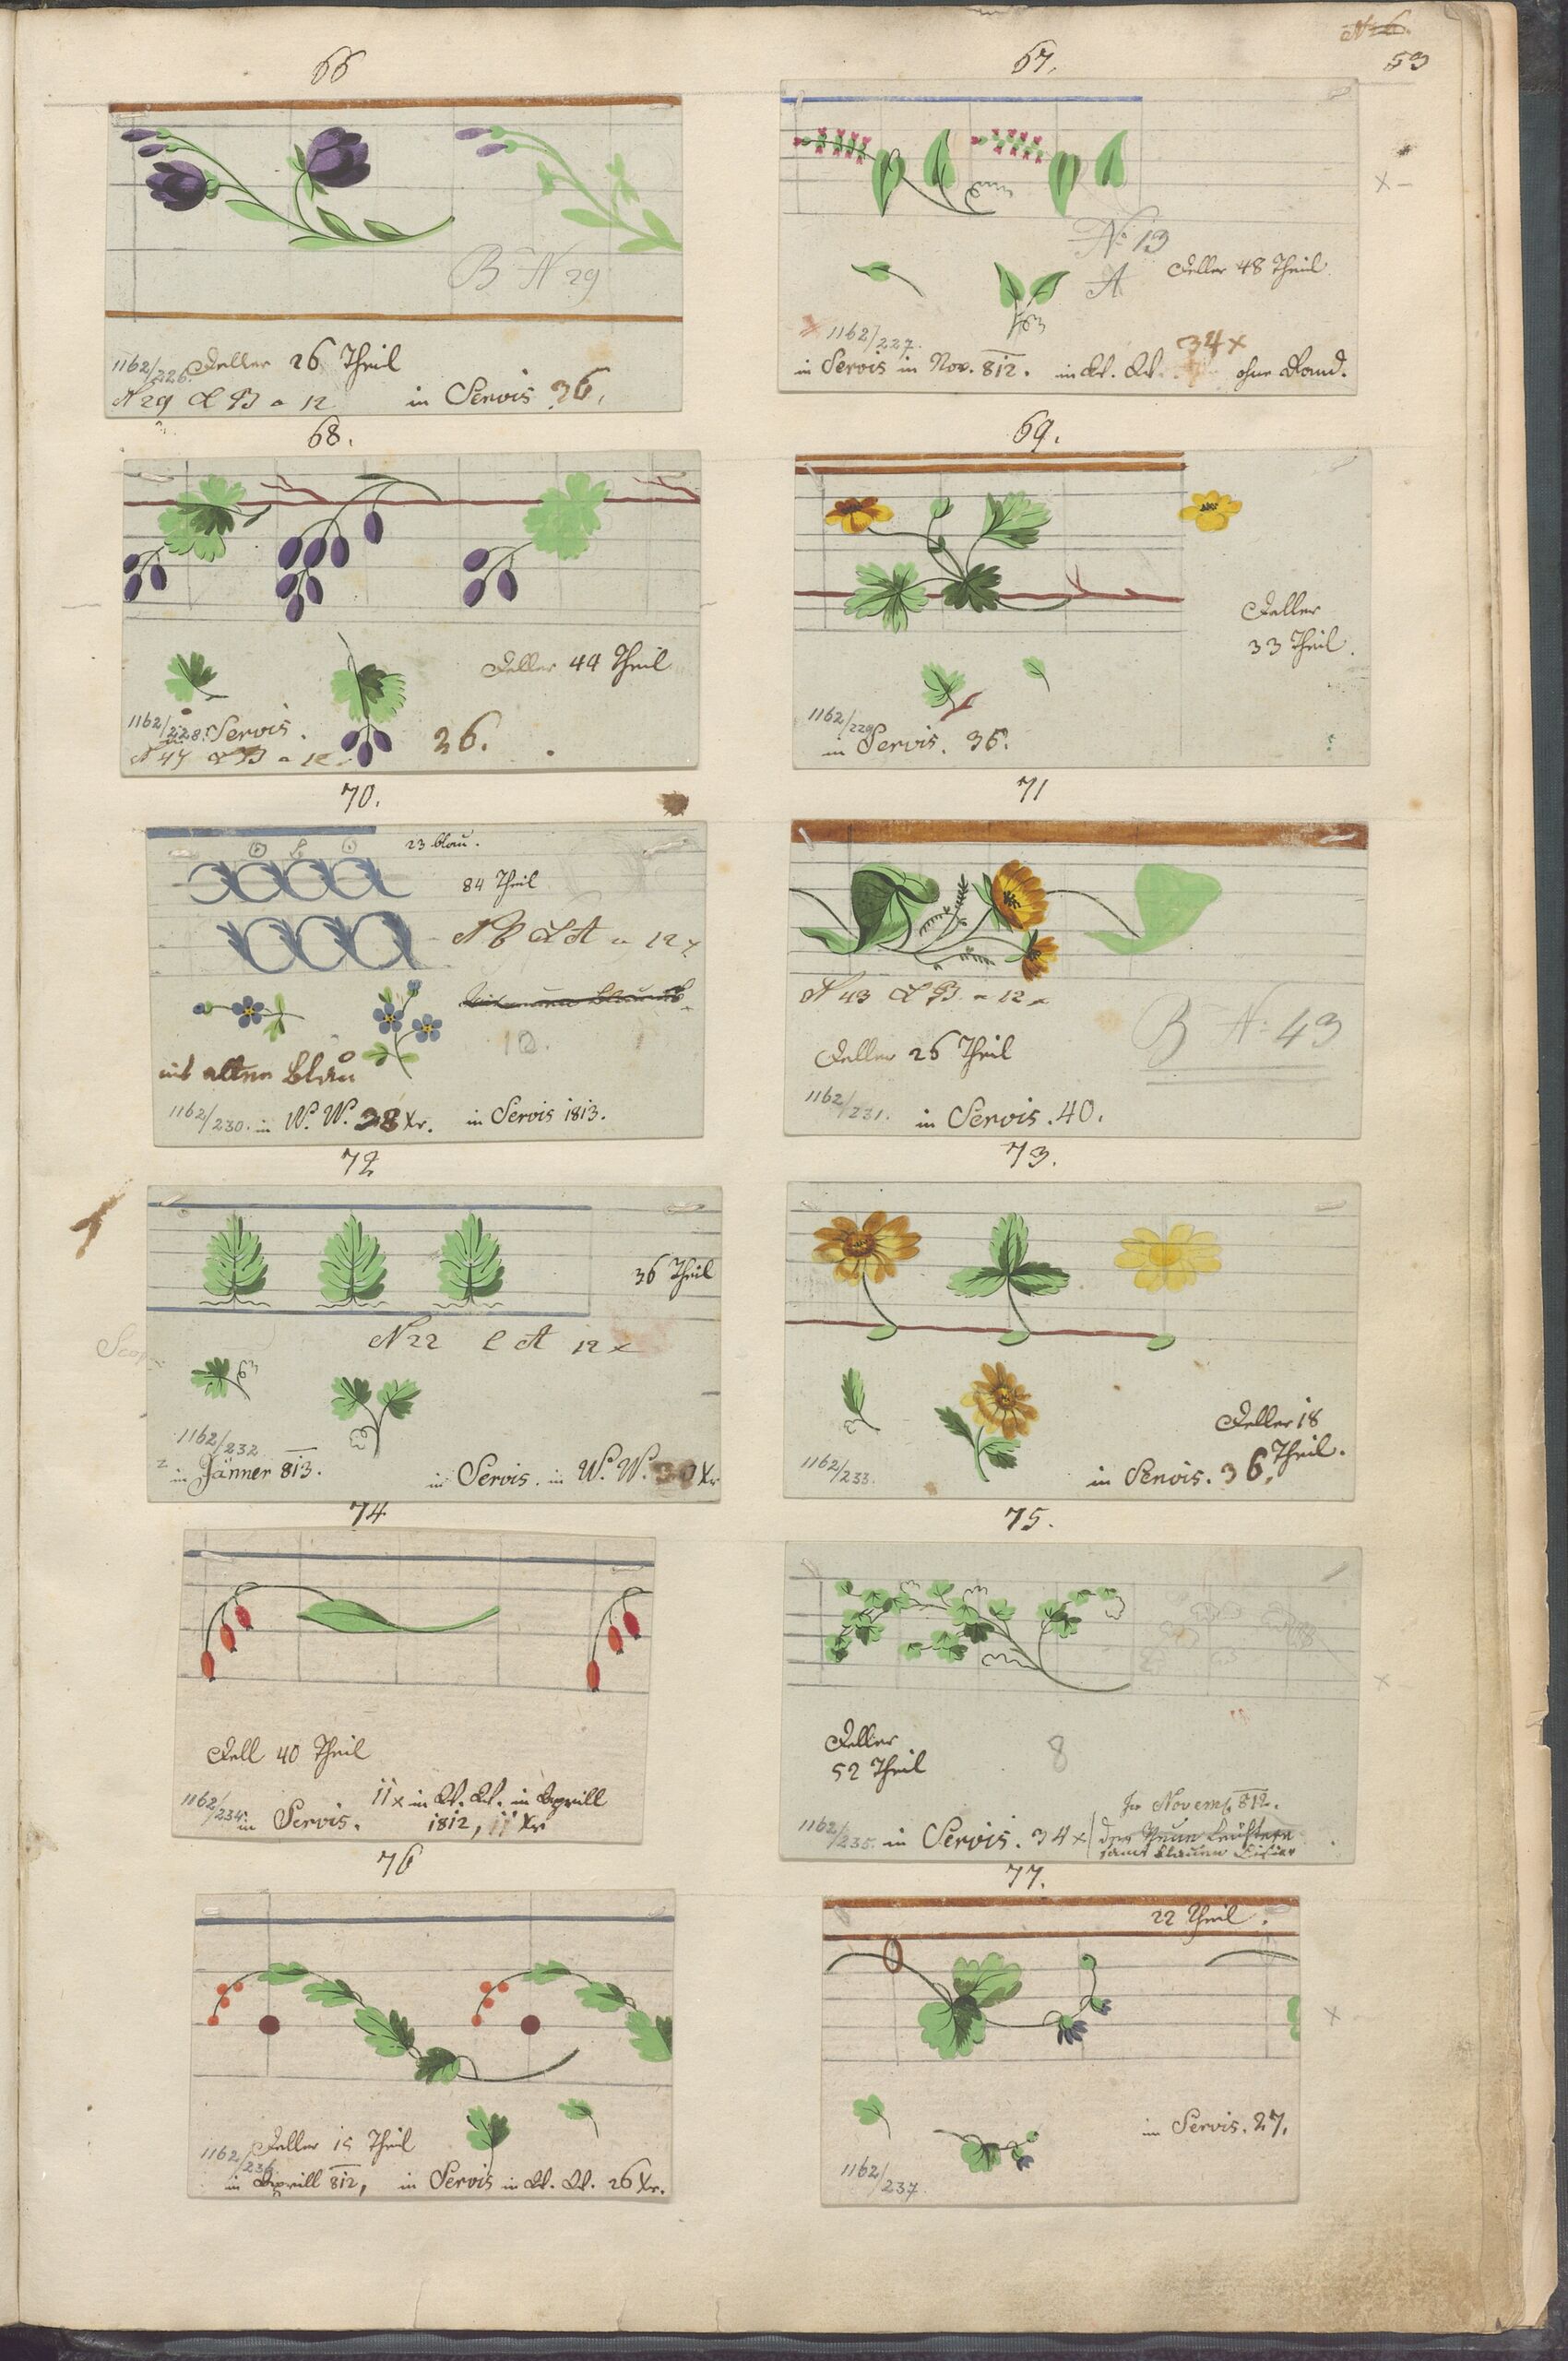 N 6.
53
66
B N 29
Teller 26 Theil
1162/226.
N 29 L B a 12
in Servis 36.
67.
N: 13
A
Teller 48 Theil
63
1162/227.
34 x
in Servis in Nov. 812. in W. W. ohne Rand.
68.
Teller 44 Theil
1162/228.
in Servis.
36.
N 47 L B a 12
69.
Teller
33 Theil.
1162/229
in Servis. 36.
70.
23 blau.
84 Theil
N 6 L A a 12 x
10.
mit altem Blau
1162/230. in W. W. 28 Xr. in Servis 1813.
71
N 43 L B a 12 x
B N: 43
Teller 26 Theil
1162/231.
in Servis. 40.
72
36 Theil
N 22 L A 12 x
63
1162/232
in Jänner 813.
in Servis. in W. W. 30 Xr
73.
Teller 18
Theil.
1162/233.
in Servis. 36.
74
Tell 40 Theil
11 x in W. W. in Aprill
1162/234.
in Servis.
1812, 11 Xr
75.
Teller
52 Theil
8
In Novemb. 812.
1162/235. in Servis. 34 x
samt blauen
76
Teller 15 Theil
1162/236
in Aprill 812, in Servis in W. W. 26 Xr.
77.
22 Theil.
in Servis. 27.
1162/237.